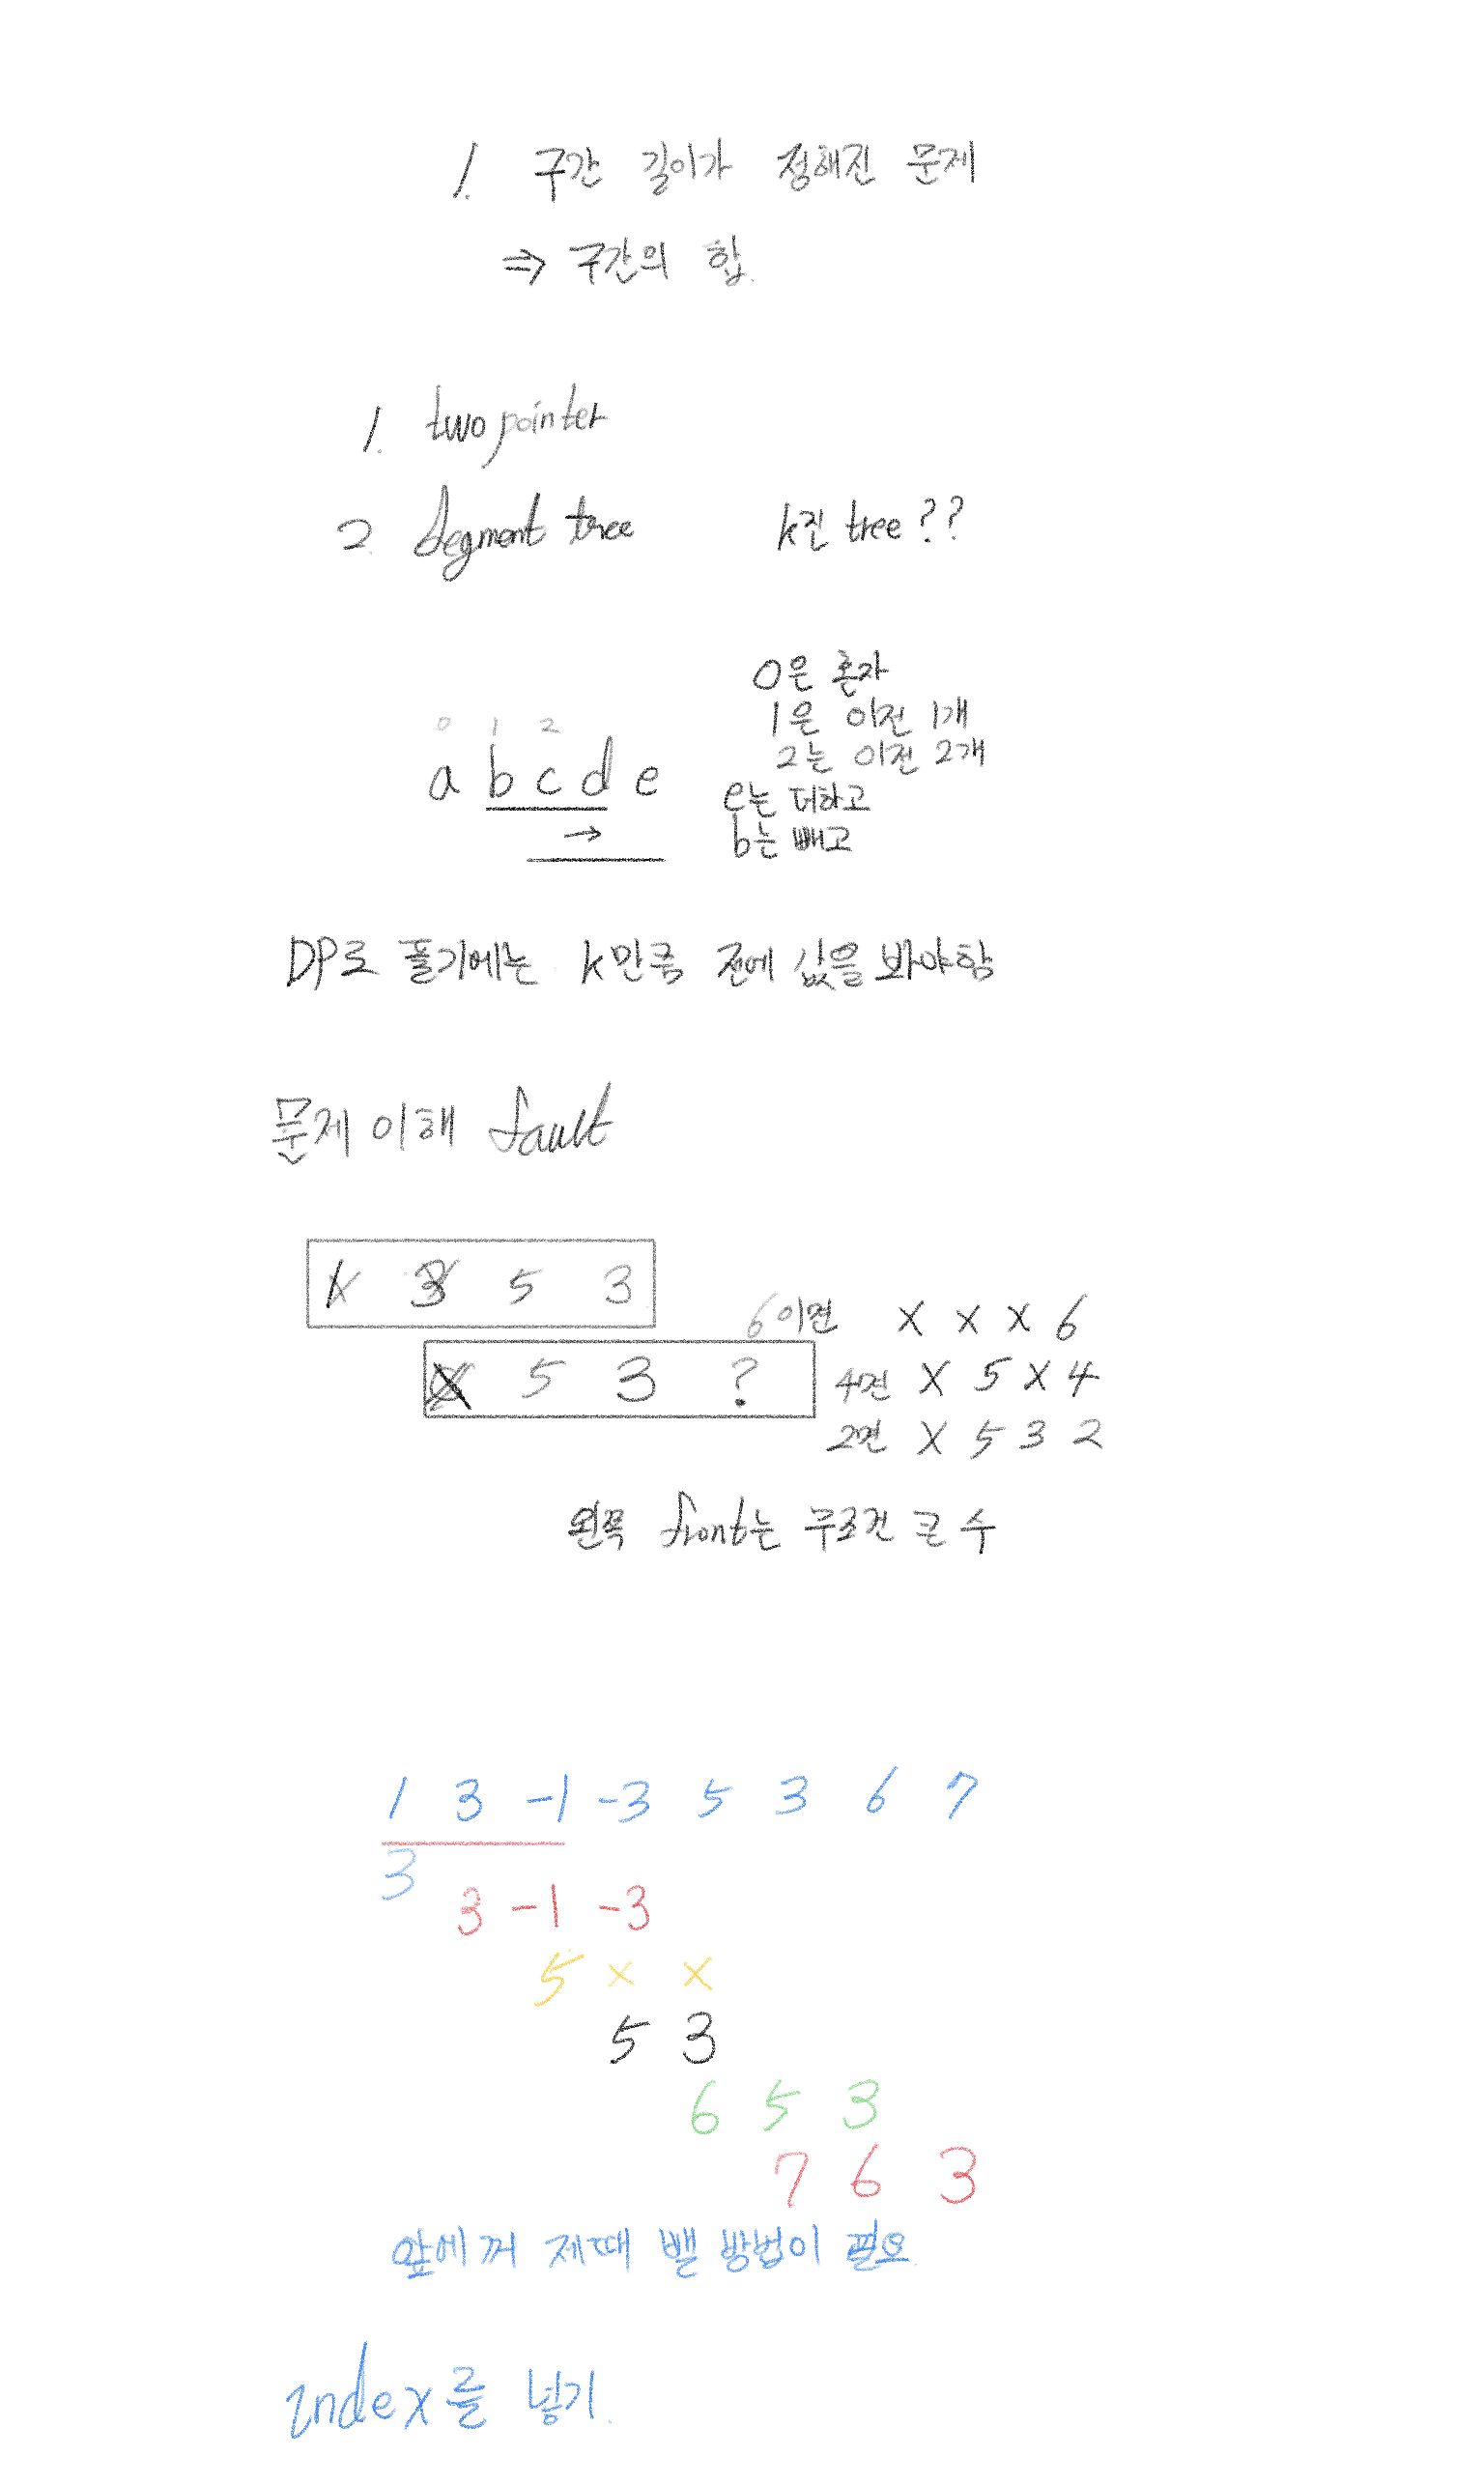 1. 구간 길이가 정해진 문제
⇒ 구간의 합.
1. two pointer
2. Segment tree k진 tree ??
0은 혼자
0 1 2 1은 이전 1개
2는 이전 2개
a b c d e e는 더하고
→ b는 빼고
DP로 풀기에는 k만큼 전에 값을 봐야함
문제 이해 fault
1 3 5 3
6이면 x x x 6
5 3 ? 4면 x 5 x 4
2면 x 5 3 2
왼쪽 front는 무조건 큰 수
1 3 -1 -3 5 3 6 7
3
3 -1 -3
5 x x
5 3
6 5 3
7 6 3
앞에꺼 제때 뺄 방법이 필요.
index를 넣기.